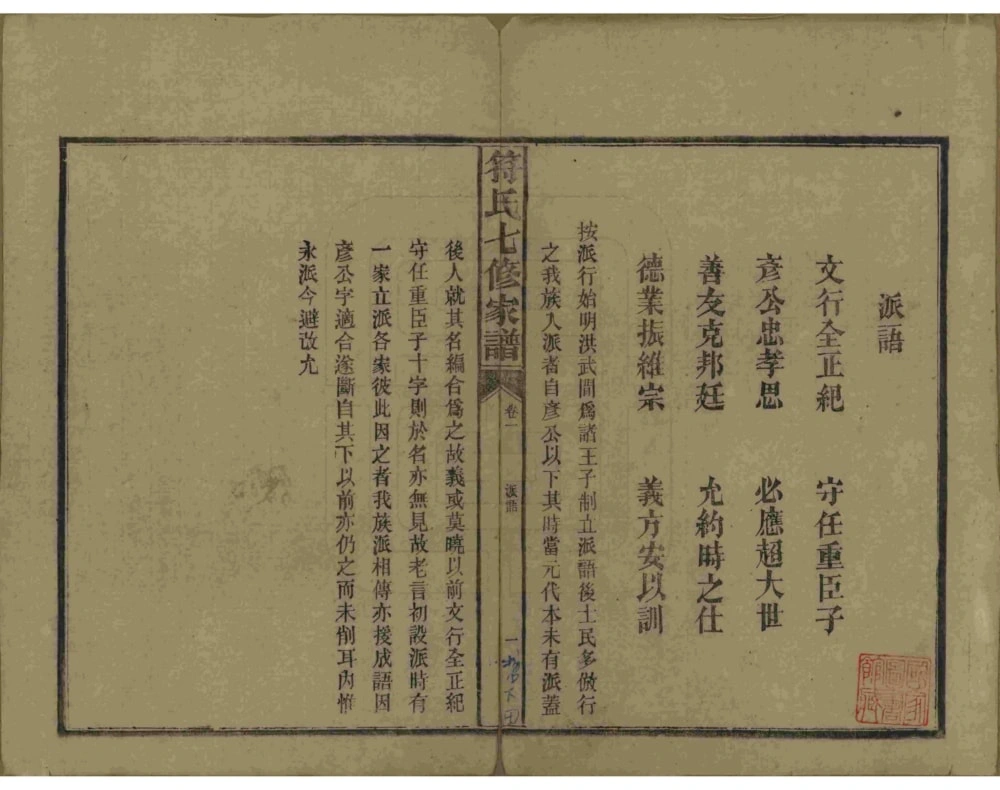 派語
文行全正紀　守任重臣子
彥公忠孝思　必應超大世
善友克邦廷　允約時之仕
德業振維宗　義方安以訓
按派行始明洪武間爲諸王子制立派語後士民多倣行
之我族入派者自彥公以下其時當元代本未有派蓋
符氏七修家譜
卷一
派語
一
後人就其名編合爲之故義或莫曉以前文行全正紀
守任重臣子十字則於名亦無見故老言初設派時有
一家立派各家彼此因之者我族派相傳亦援成語因
彥公字適合遂斷自其下以前亦仍之而未削耳內惟
永派今避改允